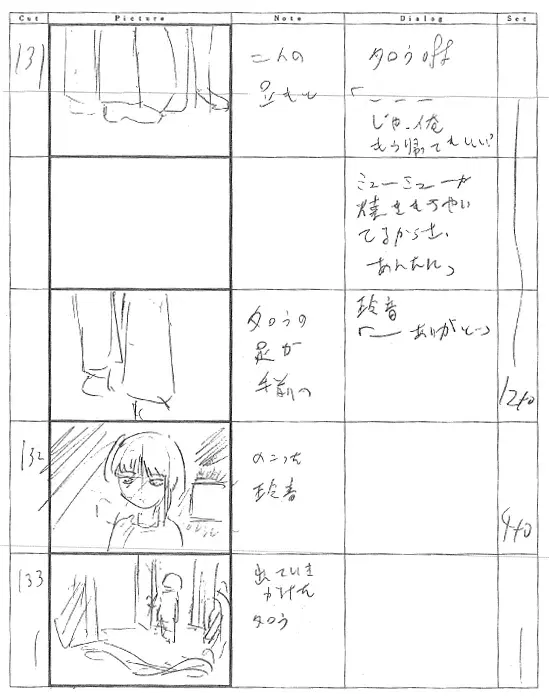 Cut Picture Note Dialog Sec
131
二人の
足もと
タロうoff
「ーーー
じゃ、俺
もう帰ってもいい?
ミューミューが
焼きもちやい
てるからさ、
あんたに」
タロうの
足が
手前へ
玲音
「ー ありがと…」
12+0
132
のこった
玲音
4+0
133
出ていき
かけた
タロう